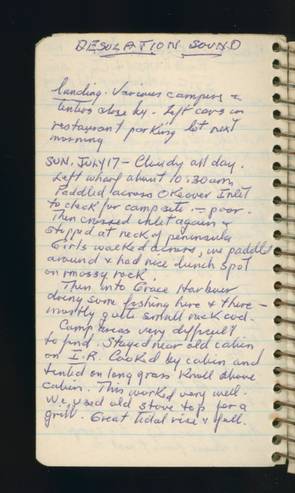 DESOLATION SOUND
landing. Various campers &
tenters close by. Left cars in
restaurant parking lot next
morning
SUN. JULY 17 - Cloudy all day.
Left wharf about 10:30 am
Paddled across Okeover Inlet
to check for camp site - poor.
Then crossed inlet again &
stopped at neck of peninsula
Girls walked across, we paddled
around & had nice lunch spot
on mossy rock.
Then into Grace Harbour
doing some fishing here & there -
mostly quite small rock cod.
Camp areas very difficult
to find. Stayed near old cabin
on I.R. Cooked by cabin and
tented on long grass knoll above
cabin. This worked very well.
We used old stove top for a
grill. Great tidal rise & fall.